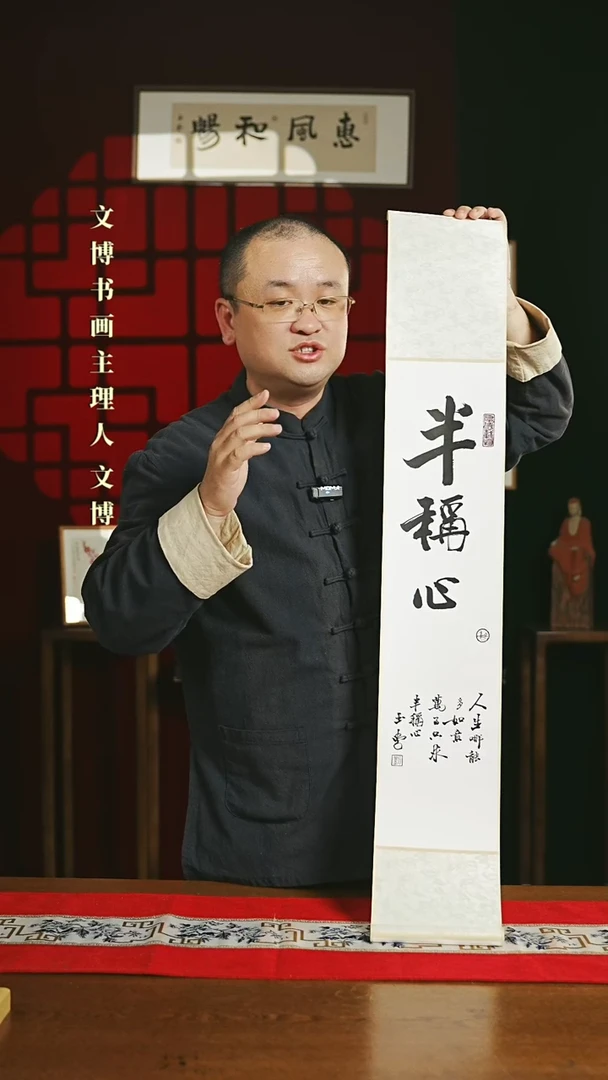 惠風和暢
文博书画主理人 文博
半稱心
人生哪能
多如意
萬事只求
半稱心